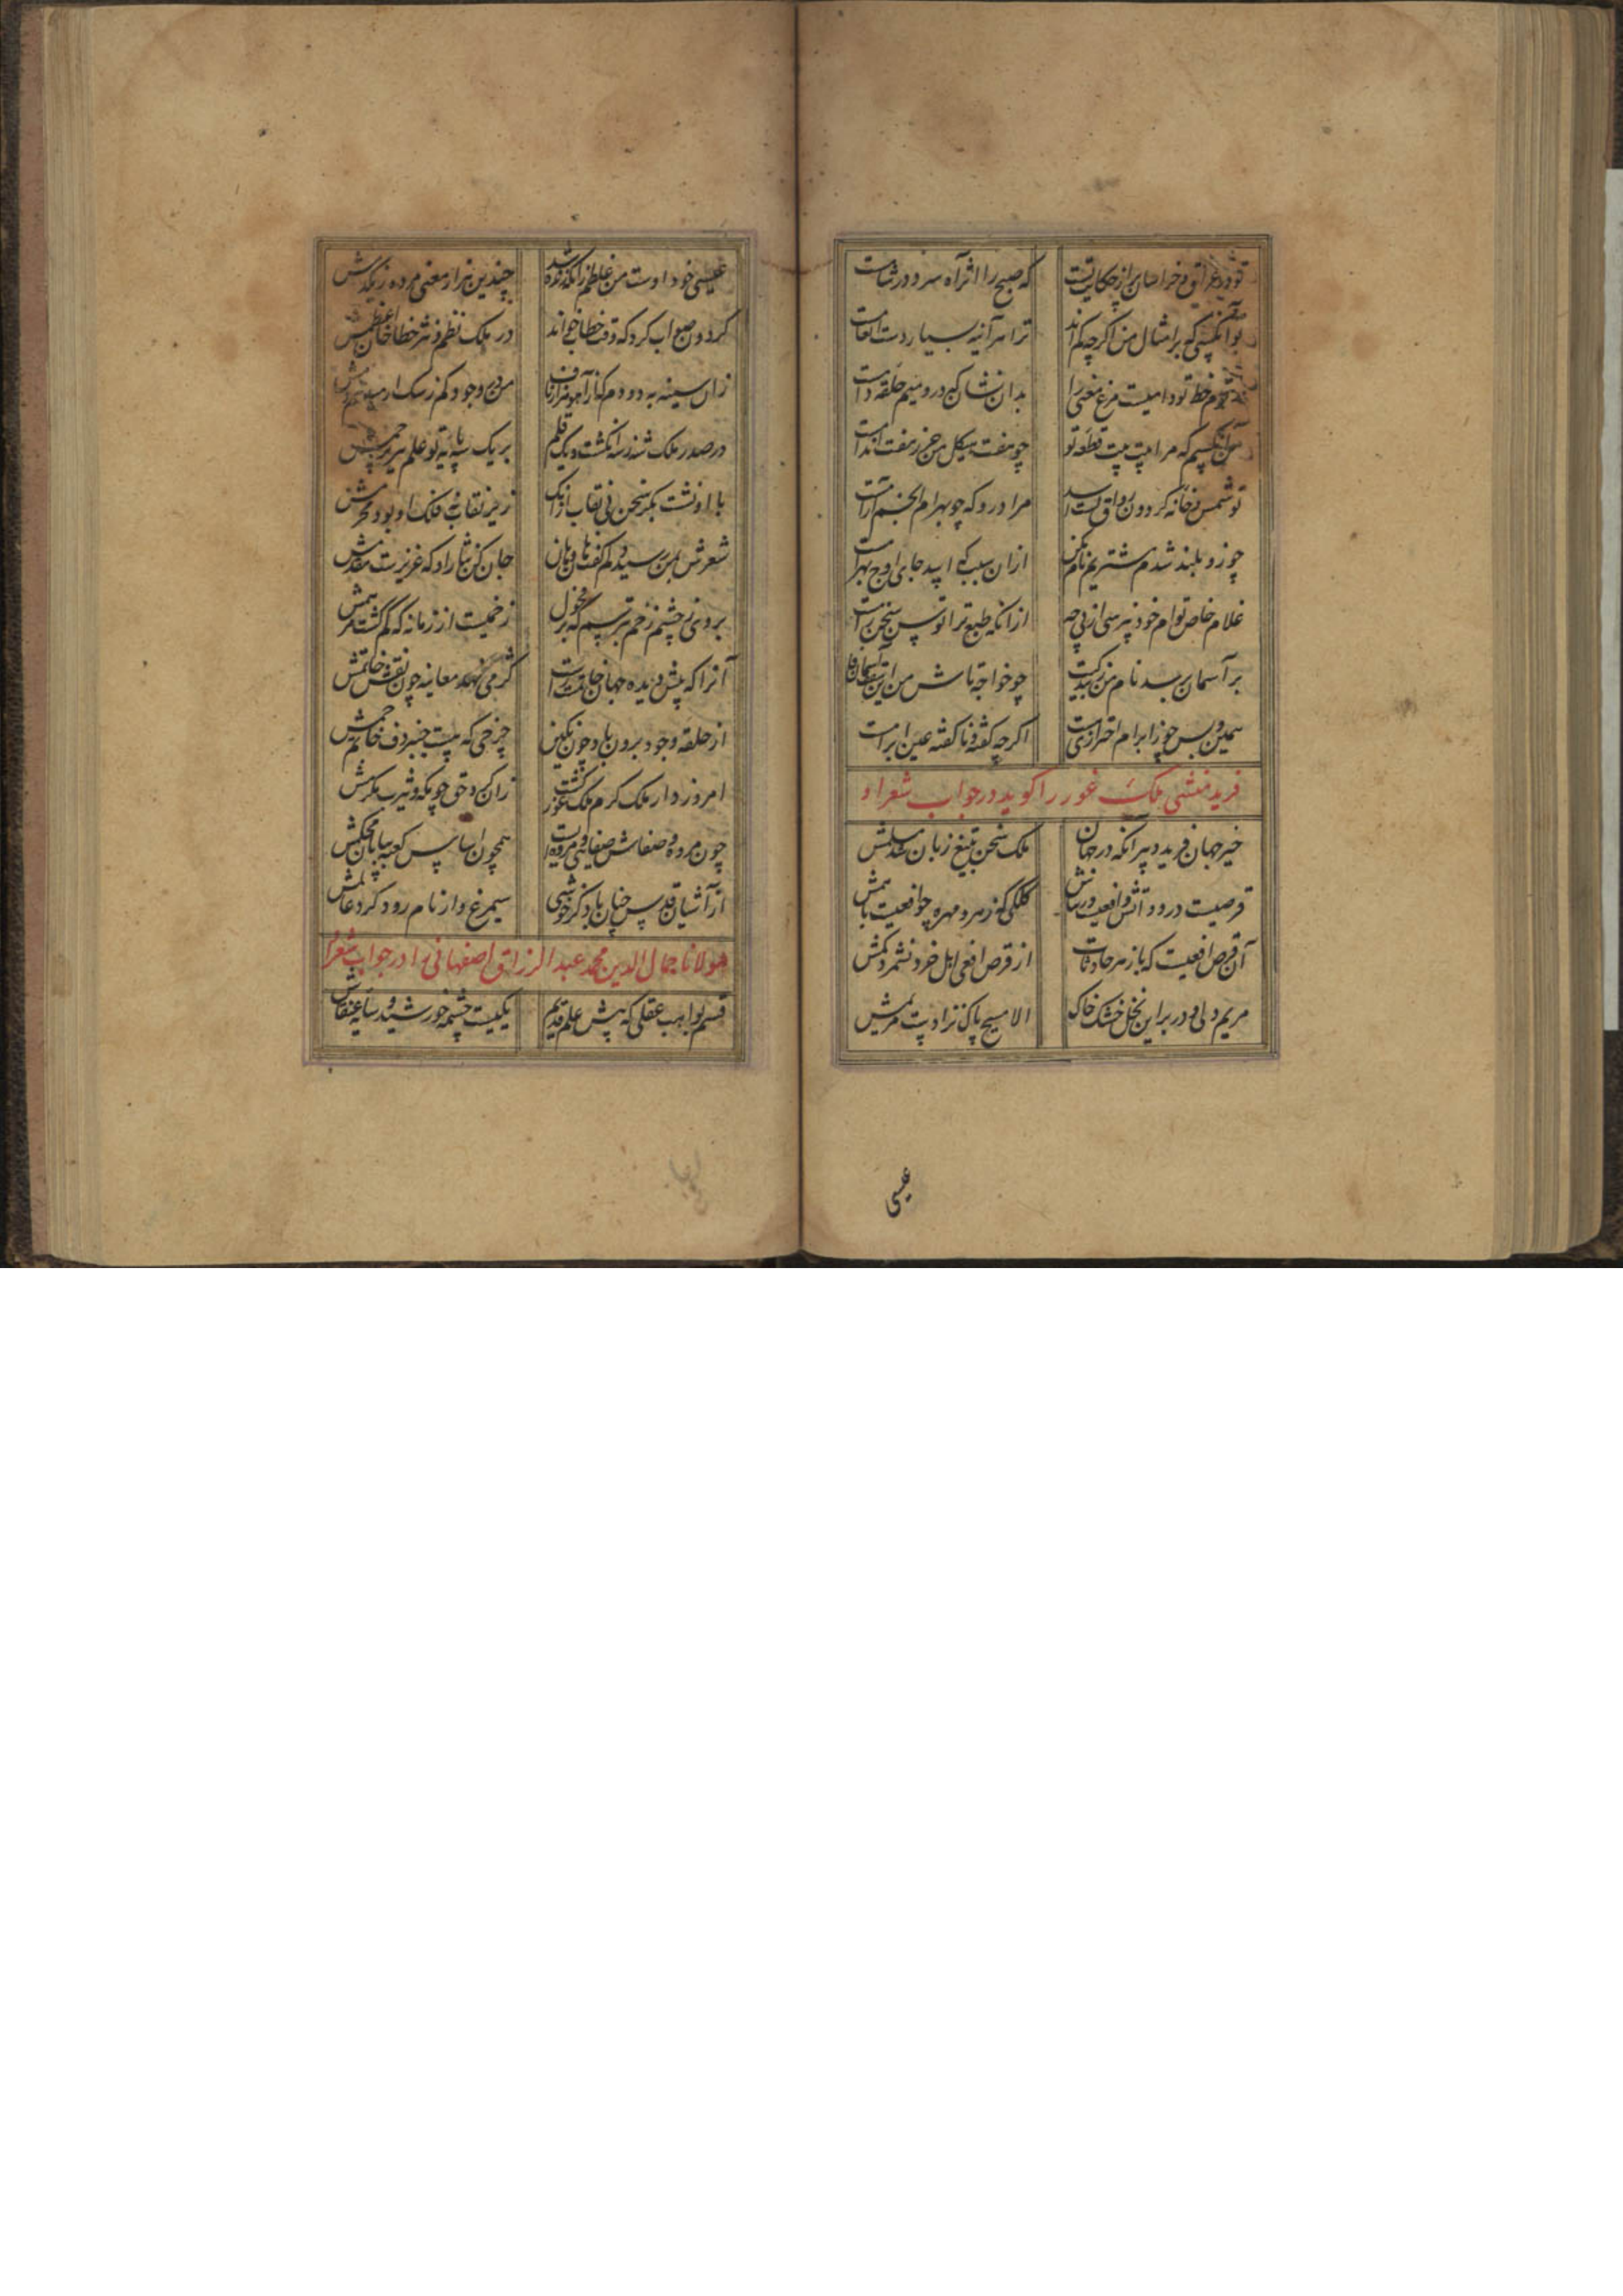 که صبح را اثر آه سرد در شامت
تو آنکسی که بر امثال من اگرچه کم اند ترا هر آینه بسیار دست انعامت
خط تو دامیست مرغ معنی را بدان نشان که درو میم حلقه دامت
که مرا بیت بیت قطعه تو چو هفت هیکل حرز هفت اندامت
تو شمس و خانه گردون رواق تست مرا درو که چو بهرام انجم آرامت
چو زو بلند شدم مشتریم نام مکن ازان سبب که اسد جای اوج بهرامت
غلام خاص توام خود نپرسی از پی چه ازانکه طبع ترا توسن سخن رامت
بر آسمان رسد نام من چو خواجه تاش من این
همین و بس چو ز ابرام احترازی هست اگرچه گفته و ناگفته عین ابرامت
فرید منشی ملک غور را گوید در جواب شعر او
خیر جهان فرید دبیر آنکه در جهان ملک سخن بتیغ زبان شد مسلمش
قرصیست در دواتش و افعیست در بنانش کلکی که زهر و مهره چو افعیست باهمش
آن قرص افعیست که باز هر حادثات از قرص افعی اهل خرد نشمرد کمش
مریم دلی و در بر این نخل خشک خاک الا مسیح پاک نزادست مریمش
عیسی
عیسی خود اوست من غلطم زانکه زنده شد چندین هزار معنی مرده ز یکدمش
گردون صواب کرد که وقت خطاب خواند در ملک نظم و نثر خطا خان اعظمش
زان سینه
در صدر ملک شد ز سه انگشت و یک قلم بر یک سه پایه تو علم بر
با او نشست بکر سخن بی نقاب ازانک زیر نقاب نه فلک او بود محرمش
شعرش بمن رسید و دلم گفت هان و هان جان کن نثار او که عزیزست مقدمش
بروی ز چشم زخم بترسم که بر زخمیست از زمانه که گم گشت مرهمش
آنرا که پیش دیده جهان خاتمست گر می نهد معاینه چون نقش خاتمش
از حلقه وجود برون باد چون نگین چرخی که نیست چنبر دف خانه خمش
امروز دار ملک کرم ملک غور گشت زان رکن و حق چو مکه و یثرب مکرمش
چون مروه و صفاش صفا و مروتست همچون اساس کعبه بنا باد محکمش
از آشیان قدس چنان باد کز خوشی سیمرغ وار نام رود گرد عالمش
مولانا جمال الدین محمد عبدالرزاق اصفهانی را در جواب شعر او
قسم بواهب عقلی که پیش علم قدیم یکیست چشمه خورشید و سایه عنقاش